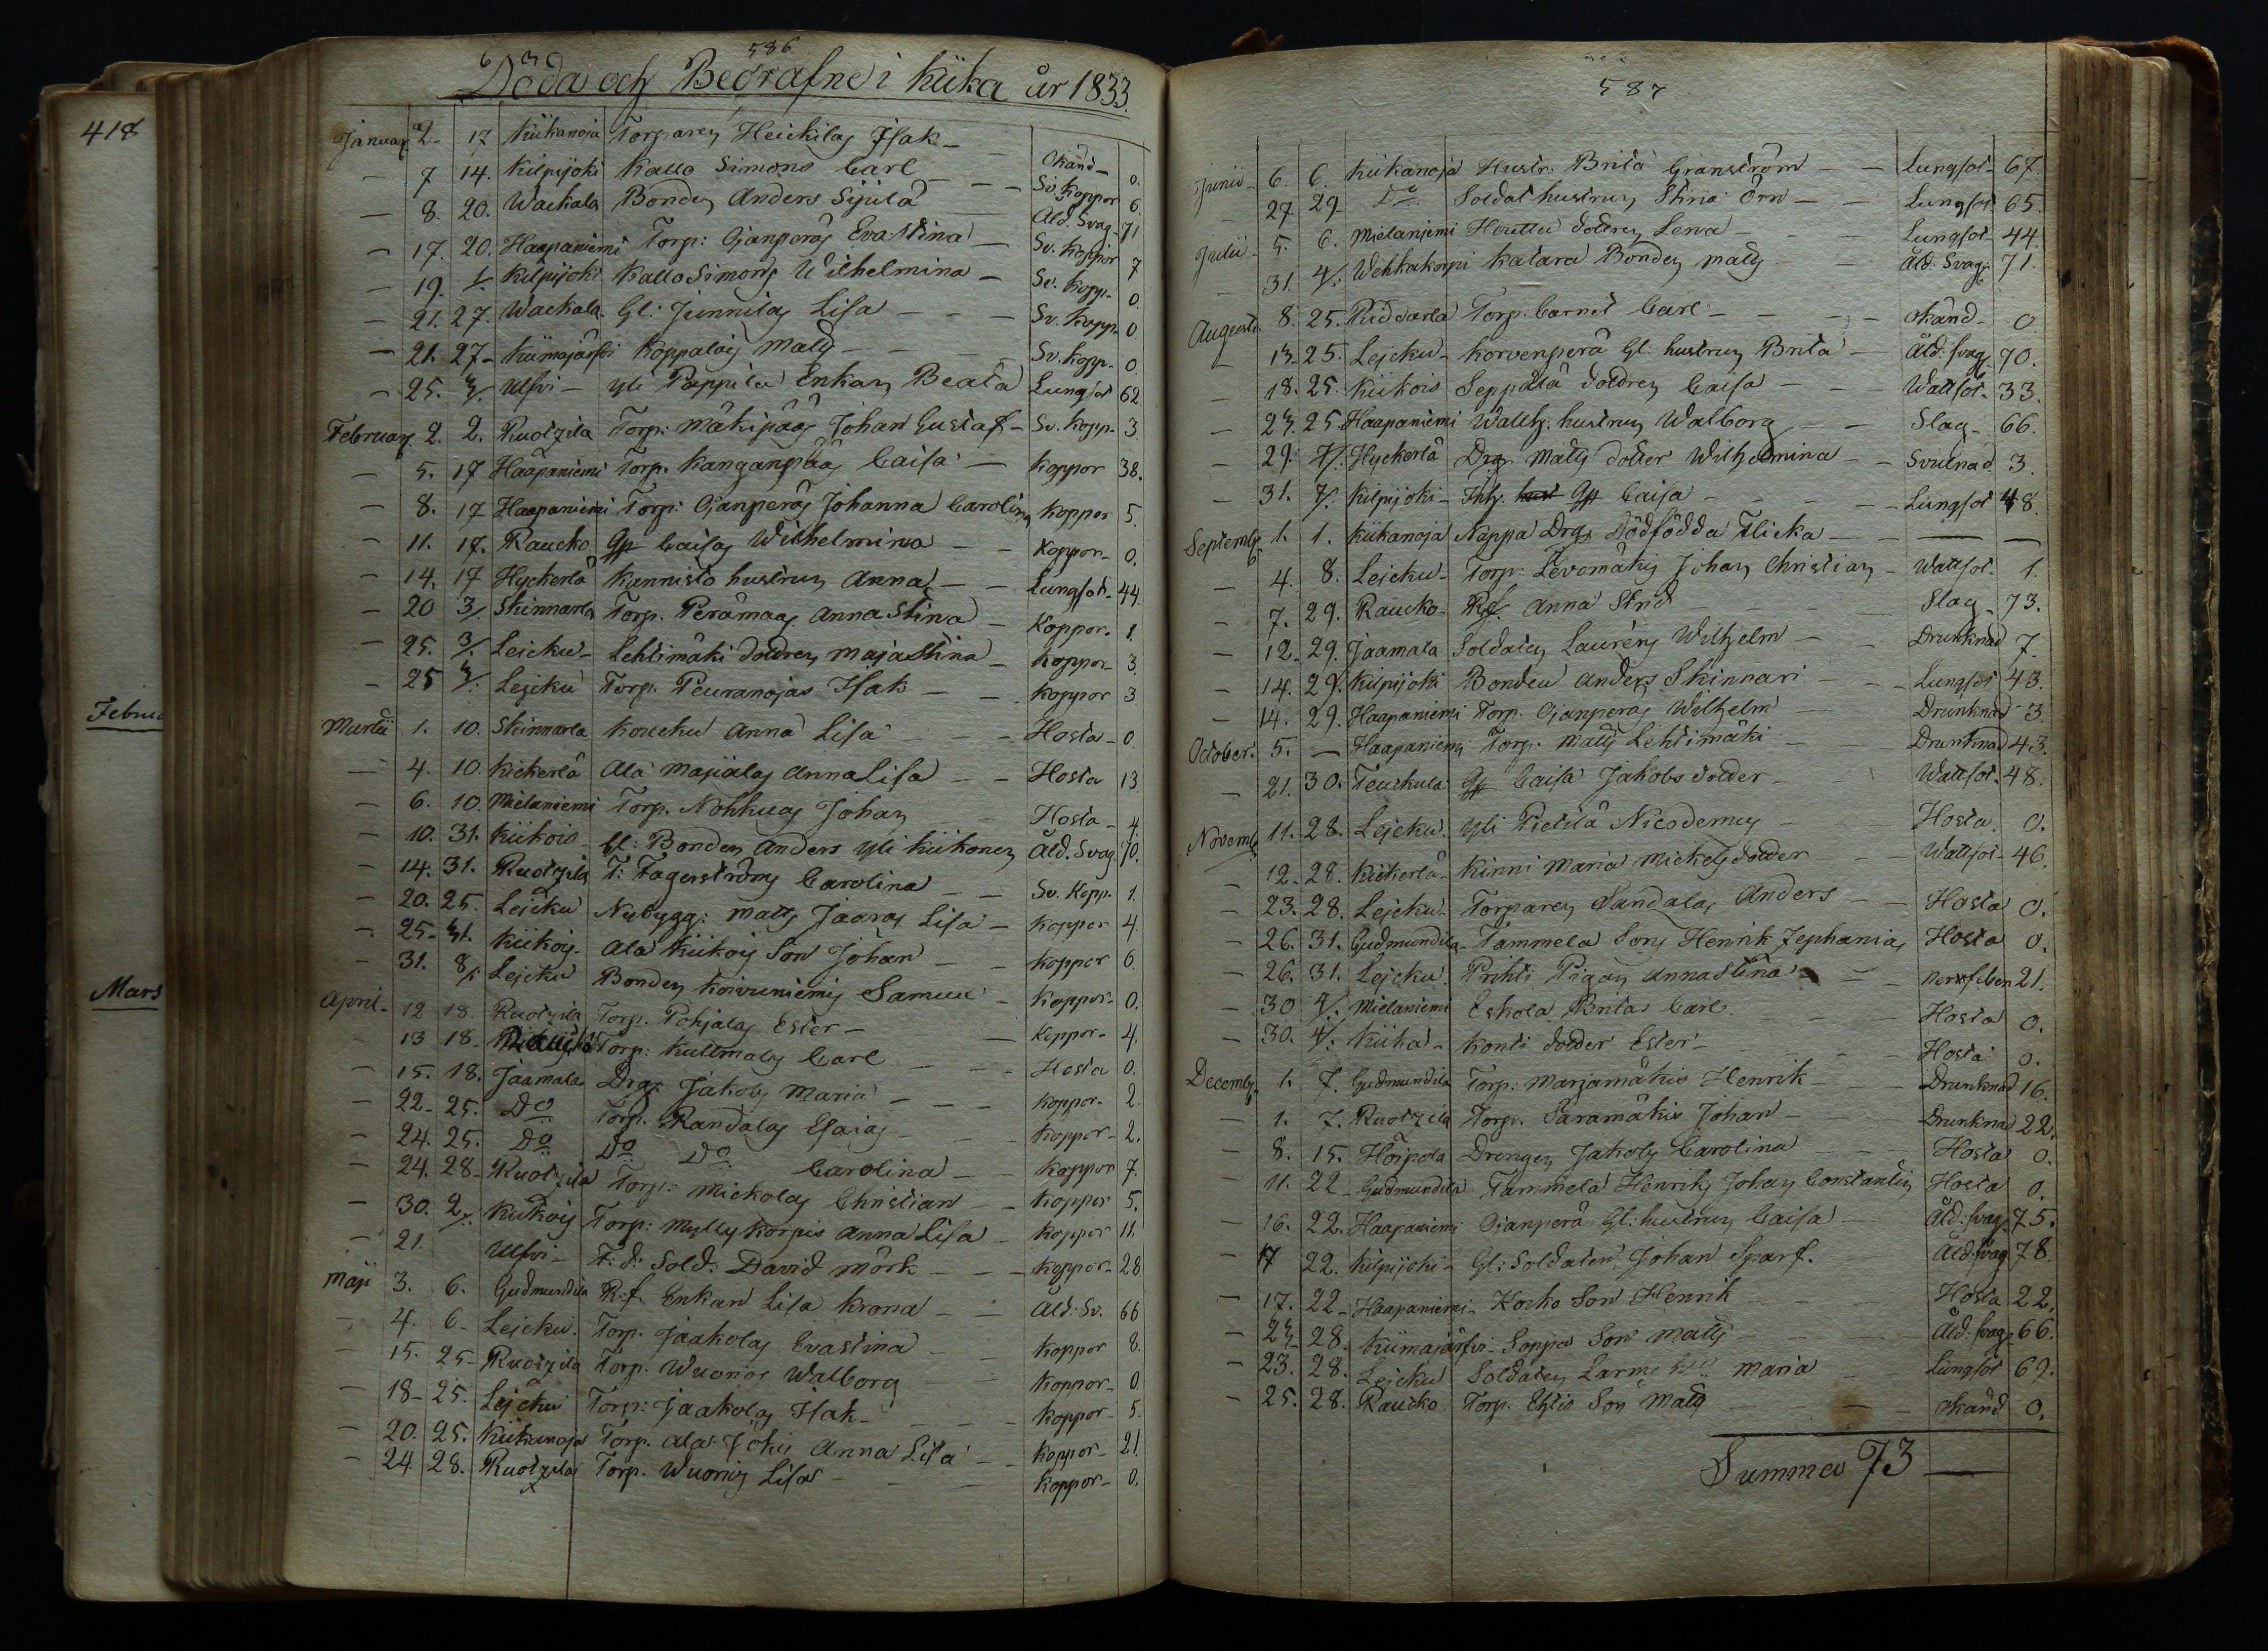 418
Februa
Mars
586
Döda och Begrafne i Kiika år 1833.
Januar. 2. 17 Kiikanoja Torparen Heickilas Isak — Okänd — 0.
— 7 14. Kilpijoki Kallo Simons Carl — Sv. Koppor 6.
— 8. 20. Wackala Bonden Anders Sijula Åld. Svag. 71
— 17. 20. Haapaniemi Torp: Ojanperäs Eva Stina — Sv. Koppor 7
— 19. Kilpijoki Kallo Simons Wilhelmina — Sv. Kopp. 0.
— 21. 27. Wackala Gl: Junnilas Lisa — Sv. Kopp. 0
— 21. 27. Kiimajärfvi Koppalas Matts — Sv. Kopp. 0.
— 25. 3/. Ulfvi — Yli Pappila Enkan Beata Lungsot 62
Februar. 2. 2. Ruotzila Torp: Mäkipääs Johan Gustaf — Sv. Kopp. 3
— 5. 17 Haapaniemi Torp. Kanganpääs Caisa — Koppor 38.
— 8. 17 Haapaniemi Torp: Ojanperäs Johanna Carolina Koppor 5.
— 11. 17. Raucko Caisas Wilhelmina — Koppor — 0.
— 14. 17 Hyckerlä Kannisto hustrun Anna — Lungsot. 44
— 20 3/. Skinnarla Torp. Perämaas Anna Stina — Koppor. 1.
— 25. 3/. Leicku — Lehtimäki dottren Maja Stina — Koppor — 3
— 25 3/. Lejcku Torp. Peuranojas Isak — Koppor 3
Martii 1. 10. Skinnarla Koucku Anna Lisa — Hosta — 0
— 4. 10. Kickerlä Ala Majialas Anna Lisa — Hosta 13
— 6. 10. Mielaniemi Torp. Nohkuas Johan Hosta — 4.
— 10. 31. Kiikois Gl: Bonden Anders Yli Kiikonen Åld. Svag. 70.
— 14. 31. Ruotzila T: Fagerströms Carolina — Sv. Kopp. 1.
— 20. 25. Lejcku Nybygg: Matts Jaaras Lisa — Koppor 4
— 25. 31. Kiikois. Ala Kiikois Son Johan — Koppor 6.
— 31. 8/. Lejcku Bonden Koivuniemis Samuel — Koppor 0.
April. 12 18. Ruotzila Torp. Pohjalas Ester — Koppor — 4.
— 13 18. Torp: Kultmalas Carl — Hosta 0.
— 15. 18. Jaamala Drg: Jakobs Maria — Koppor. 2
— 22. 25. Do Torp. Randalas Esaias Koppor — 2.
— 24. 25. Do Do Do Carolina — Koppor 7.
— 24. 28. Ruotzila Torp: Mickolas Christian — Koppor 5.
— 30. 2/. Kiikois Torp: Myllykorpis Anna Lisa — Koppor 11.
— 21. Ulfvi — F: d: Sold: David Mörk — Koppor — 28
Maji 3. 6. Gudmundila R:f. Enkan Lisa Krona — Åld: Sv. 66
— 4. 6. Lejcku. Torp. Jaakolas Eva Stina Koppor 8.
— 15. 25. Ruotzila Torp. Wuorios Walborg Koppor — 0
— 18. 25. Lejcku Torp: Jaakolas Isak — Koppor — 5.
— 20. 25. Kiikanoja Torp. Ala Jokis Anna Lisa — Koppor — 21
— 24. 28. Ruotzila Torp. Wuorios Lisa — Koppor — 0.
587
Junii 6. 6. Kiikanoja Hustr: Brita Granström — Lungsot — 67.
— 27. 29. Do. Soldat hustrun Stina Örn — Lungsot. 65.
Julii — 5. 6. Mielaniemi Houttu dottren Lena — Lungsot — 44.
— 31. 4/. Wehkakorpi Katara Bonden Matts Åld: Svag. 71.
Augusti. 8. 25. Riddarla Torp: barnet Carl — Okänd — 0.
— 13. 25. Lejcku — Korvenperä Gl: hustrun Brita — Åld: svag. 70.
— 18. 25. Kiikois Seppälä dottren Caisa — Wattsot. 33.
— 23. 25. Haapaniemi hustrun Walborg — Slag — 66.
— 29. 7/. Hyckerlä Drg: Matts dotter Wilhelmina — Svulnad. 3.
— 31. 7/. Kilpijoki — Caisa — Lungsot 48.
Septemb. 1. 1. Kiikanoja Nappa Drgs Dödfödda Flicka — — —
— 4. 8. Lejcku — Torp: Levomäkis Johan Christian — Wattsot. 1.
— 7. 29. Raucko — Rf. Anna Strid Slag — 73.
— 12. 29. Jaamala Soldaten Lauréns Wilhelm — Drunknad 7.
— 14. 29. Kilpijoki Bonden Anders Skinnari — Lungsot 43.
— 14. 29. Haapaniemi Torp. Ojanperäs Wilhelm Drunknad 3.
October. 5. — Haapaniemi Torp: Matts Lehtimäki Drunknad 43.
— 21. 30. Teuckula Caisa Jakobs dotter — Wattsot. 48.
Novemb. 11. 28. Lejcku. Yli Pietilä Nicodemus Hosta. 0.
— 12. 28. Kickerlä — Kinni Maria Mickels dotter — Wattsot — 46.
— 23. 28. Lejcku. Torparen Sandalas Anders — Hosta 0.
— 26. 31. Gudmundila — Tammela Sons Henrik Zephanias Hosta 0.
— 26. 31. Lejcku Prihti Pigan Anna Stina — Nerffeber 21.
— 30 4/. Mielaniemi Eskola Britas Carl Hosta 0.
— 30. 4/. Kiika — Konti dotter Ester — Hosta 0.
Decemb. 1. 7. Gudmundila Torp: Marjamäkis Henrik — Drunknad 16.
— 1. 7. Ruotzila Torp. Saramäkis Johan — Drunknad 22.
— 8. 15. Höipola Drengen Jakobs Carolina — Hosta 0.
— 11. 22. Gudmundila Tammela Henriks Johan Constantin Hosta 0.
— 16. 22. Haapaniemi Ojanperä Gl: hustrun Caisa — Åld: svag. 75.
— 17 22. Kilpijoki — Gl: Soldaten Johan Sparf. Åld: svag 78.
— 17. 22. Haapaniemi — Korko Son Henrik Hosta 22.
— 23. 28. Kiimajärfvi — Soppa Son Matts Åld: svag. 66.
— 23. 28. Lejcku Soldaten Larms Maria Lungsot 69.
— 25. 28. Raucko Torp. Son Matts — Okänd 0.
Summa 73 —